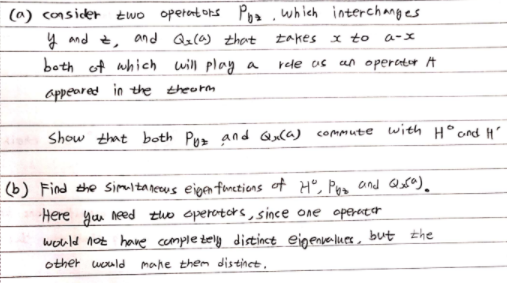 (a) consider two operators Pyz, which interchanges
y and z, and Qx(a) that takes x to a-x
both of which will play a role as an operator A
appeared in the theorm
Show that both Pyz and Qx(a) commute with H° and H'
(b) Find the Simultaneous eigenfunctions of H°, Pyz and Qx(a).
Here you need two operators, since one operator
would not have completely distinct eigenvalues, but the
other would make them distinct.